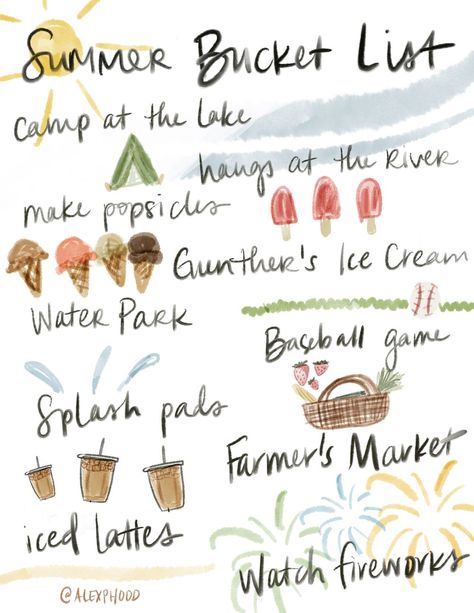 Summer Bucket List
camp at the Lake
hangs at the River
make popsicles
Gunther's Ice Cream
Water Park
Baseball game
Splash pads
Farmer's Market
iced lattes
Watch fireworks
@ALEXPHOOD